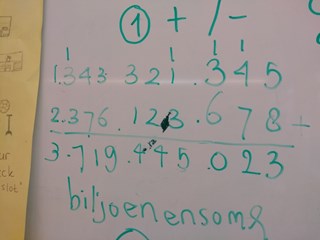 ① + / -
1 1 1 1
1.343 321 .345
2.376.123.678 +
3.719.445.023
biljoenensoms
ck
slot"